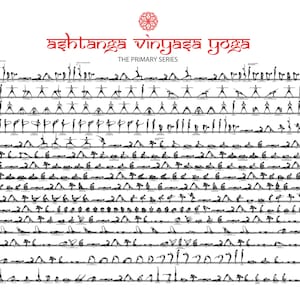 ashtanga vinyasa yoga
THE PRIMARY SERIES